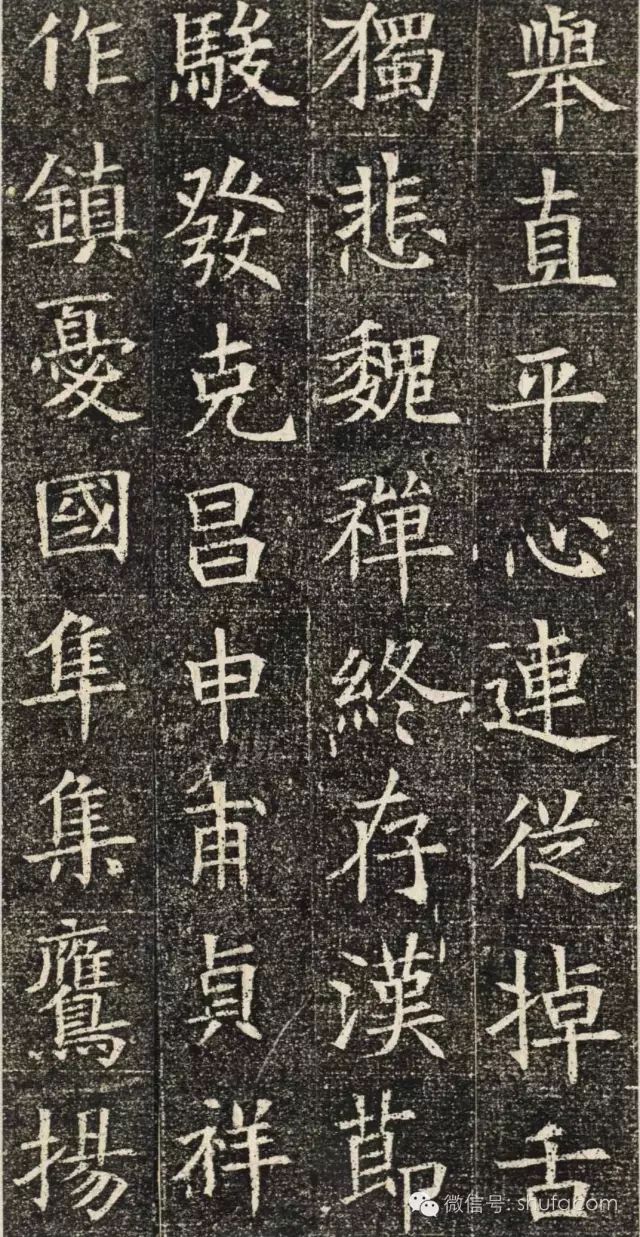 舉直平心連從掉舌
獨悲魏禪終存漢節
駿發克昌申甫貞祥
作鎮憂國隼集鷹揚
微信号: shufabcom